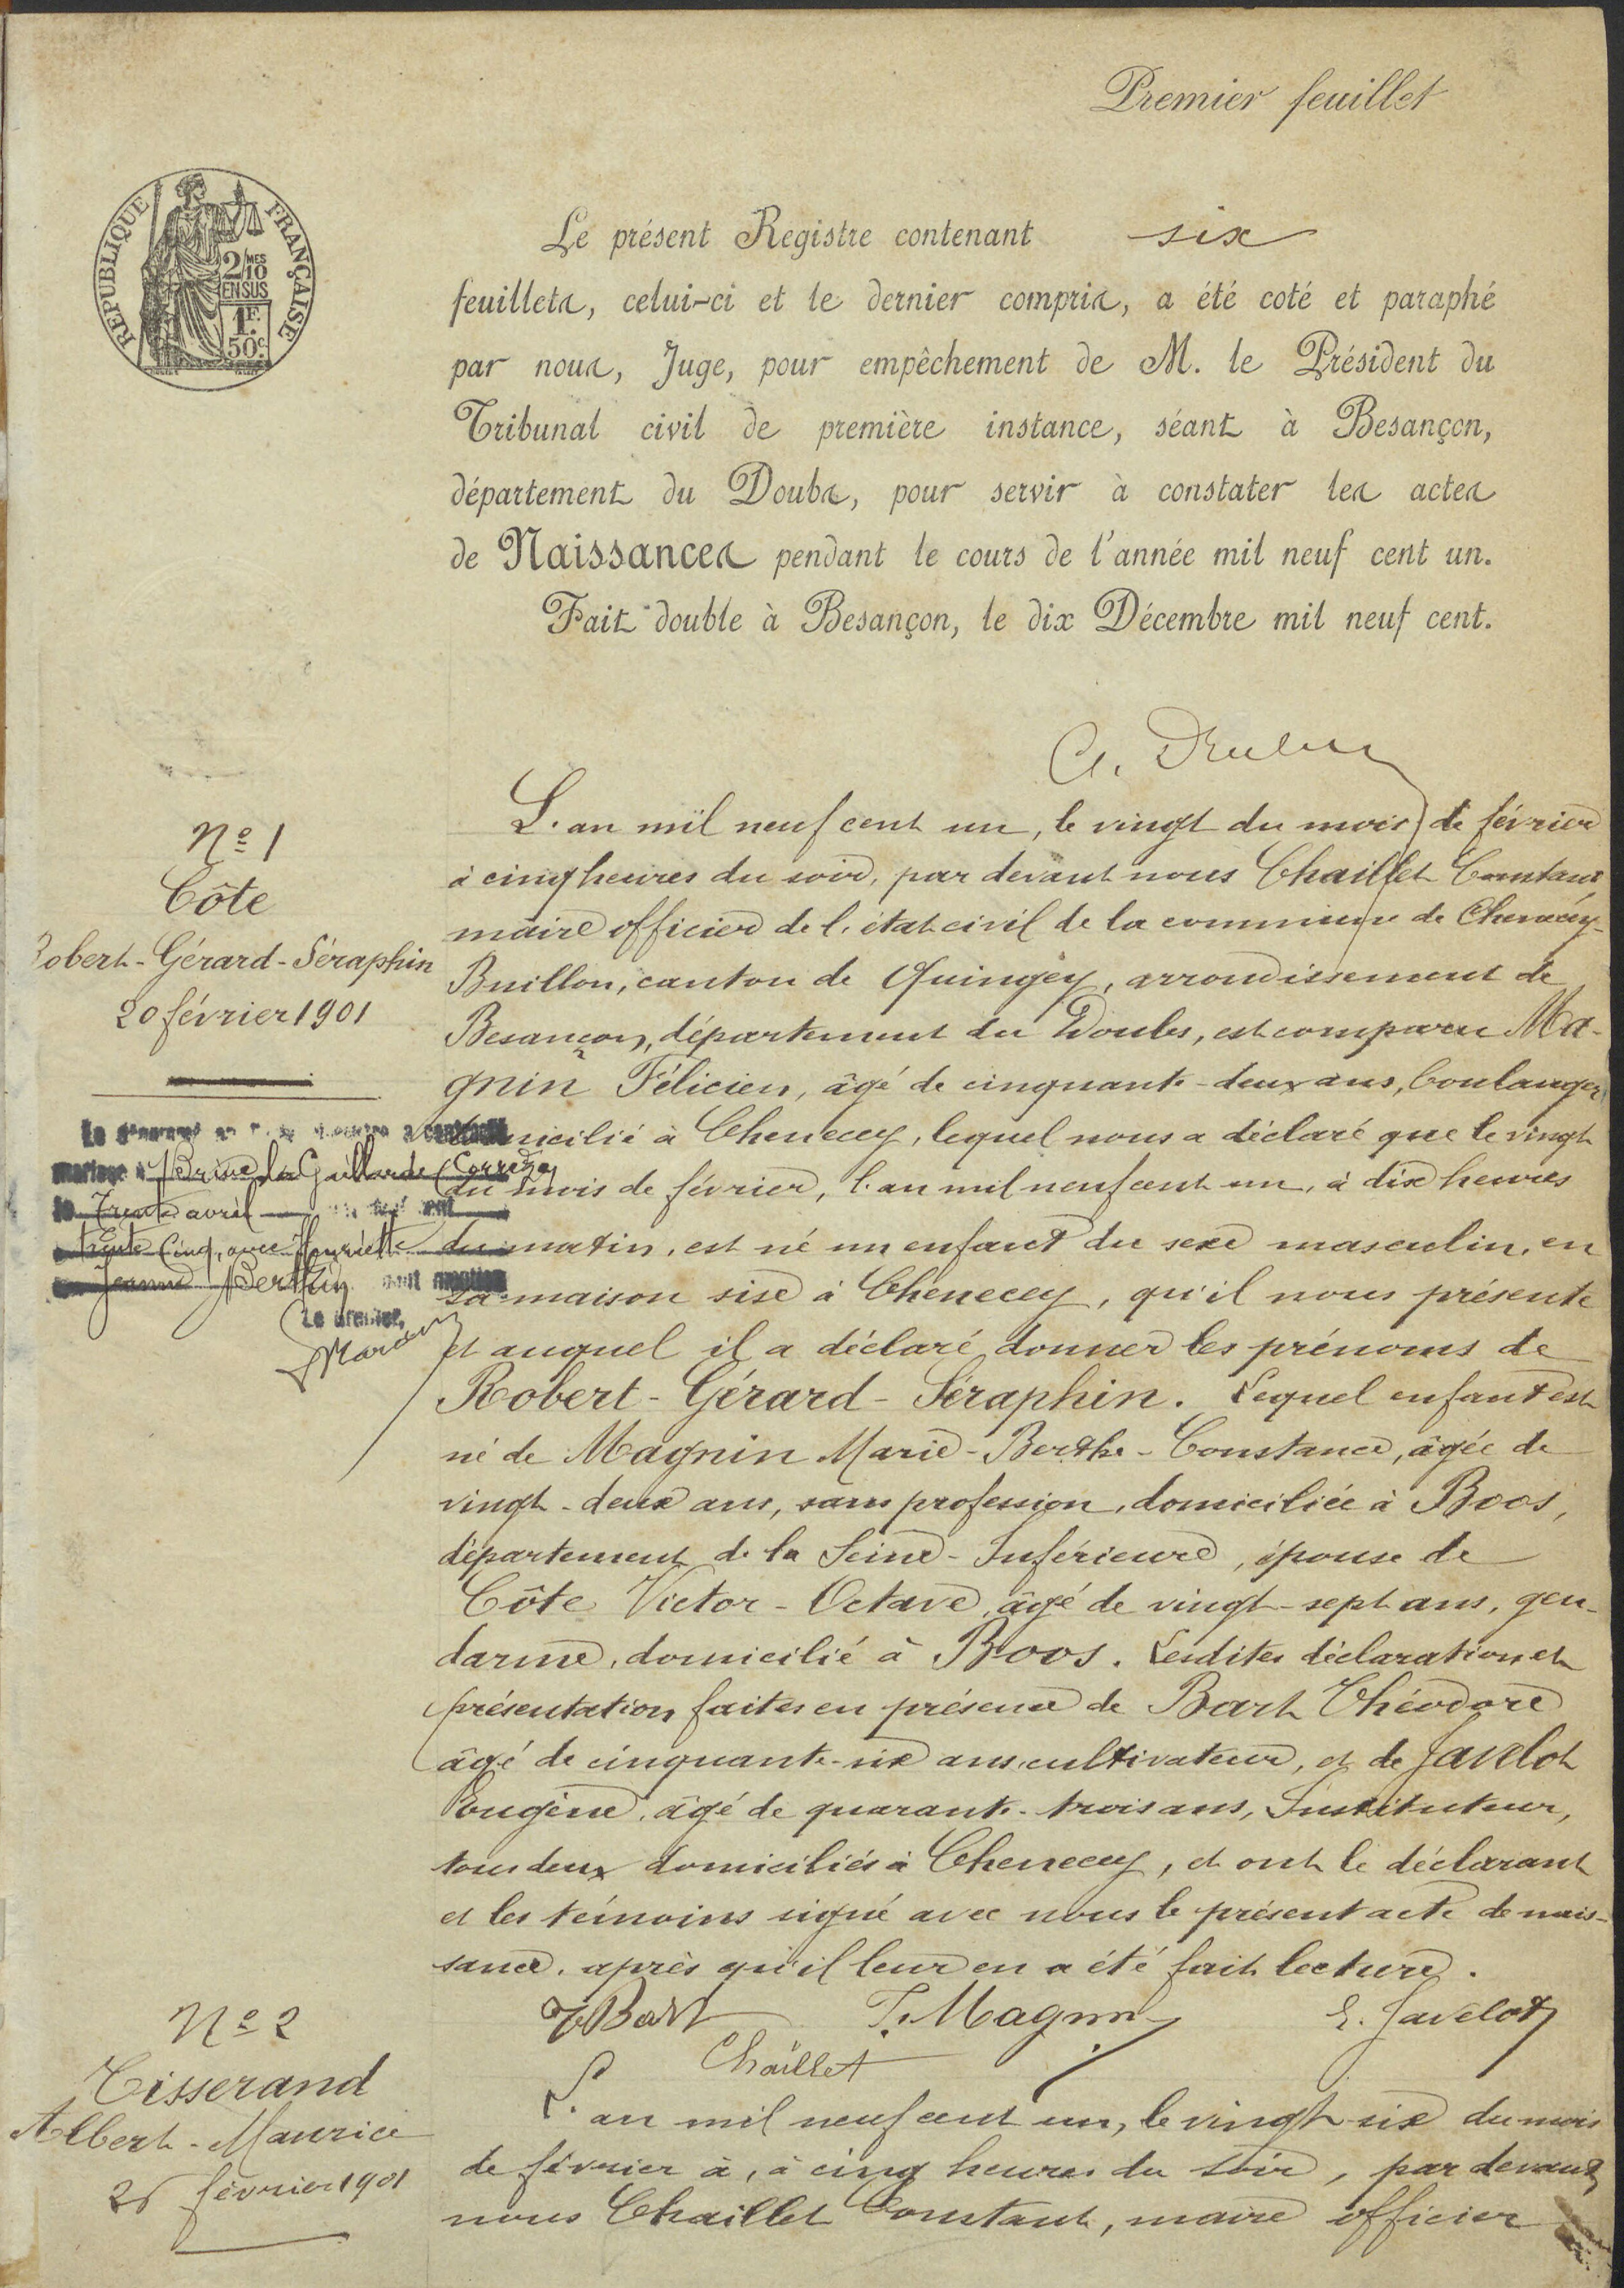 Premier feuillet
RÉPUBLIQUE FRANÇAISE
2/10 MES
EN SUS
1 F.
50 c.
Le présent Registre contenant six
feuillets, celui-ci et le dernier compris, a été coté et paraphé
par nous, Juge, pour empêchement de M. le Président du
Tribunal civil de première instance, séant à Besançon,
département du Doubs, pour servir à constater les actes
de Naissances pendant le cours de l'année mil neuf cent un.
Fait double à Besançon, le dix Décembre mil neuf cent.
Nº 1
Côte
Robert-Gérard-Séraphin
20 février 1901
mariage à Brive la Gaillarde (Corrèze)
le Trente avril
trente cinq, avec Henriette
Jeanne Berthin
Le Greffier,
L'an mil neuf cent un, le vingt du mois de février
à cinq heures du soir, par devant nous Chaillet Constant
maire officier de l'état civil de la commune de Chenecey-
Buillon, canton de Quingey, arrondissement de
Besançon, département du Doubs, est comparu Ma-
gnin Félicien, âgé de cinquante-deux ans, boulanger
domicilié à Chenecey, lequel nous a déclaré que le vingt
du mois de février, l'an mil neuf cent un, à dix heures
du matin, est né un enfant du sexe masculin, en
sa maison sise à Chenecey, qu'il nous présente
et auquel il a déclaré donner les prénoms de
Robert-Gérard-Séraphin. Lequel enfant est
né de Magnin Marie-Berthe-Constance, âgée de
vingt-deux ans, sans profession, domiciliée à Boos,
département de la Seine-Inférieure, épouse de
Côte Victor-Octave, âgé de vingt-sept ans, gen-
darme, domicilié à Boos. Lesdites déclaration et
présentation faites en présence de Bart Théodore
âgé de cinquante-six ans, cultivateur, et de Javelot
Eugène, âgé de quarante-trois ans, Instituteur,
tous deux domiciliés à Chenecey, et ont le déclarant
et les témoins signé avec nous le présent acte de nais-
sance, après qu'il leur en a été fait lecture.
T Bart F. Magnin E. Javelot
Chaillet
Nº 2
Tisserand
Albert-Maurice
26 février 1901
L'an mil neuf cent un, le vingt-six du mois
de février à, à cinq heures du soir, par devant
nous Chaillet Constant, maire officier